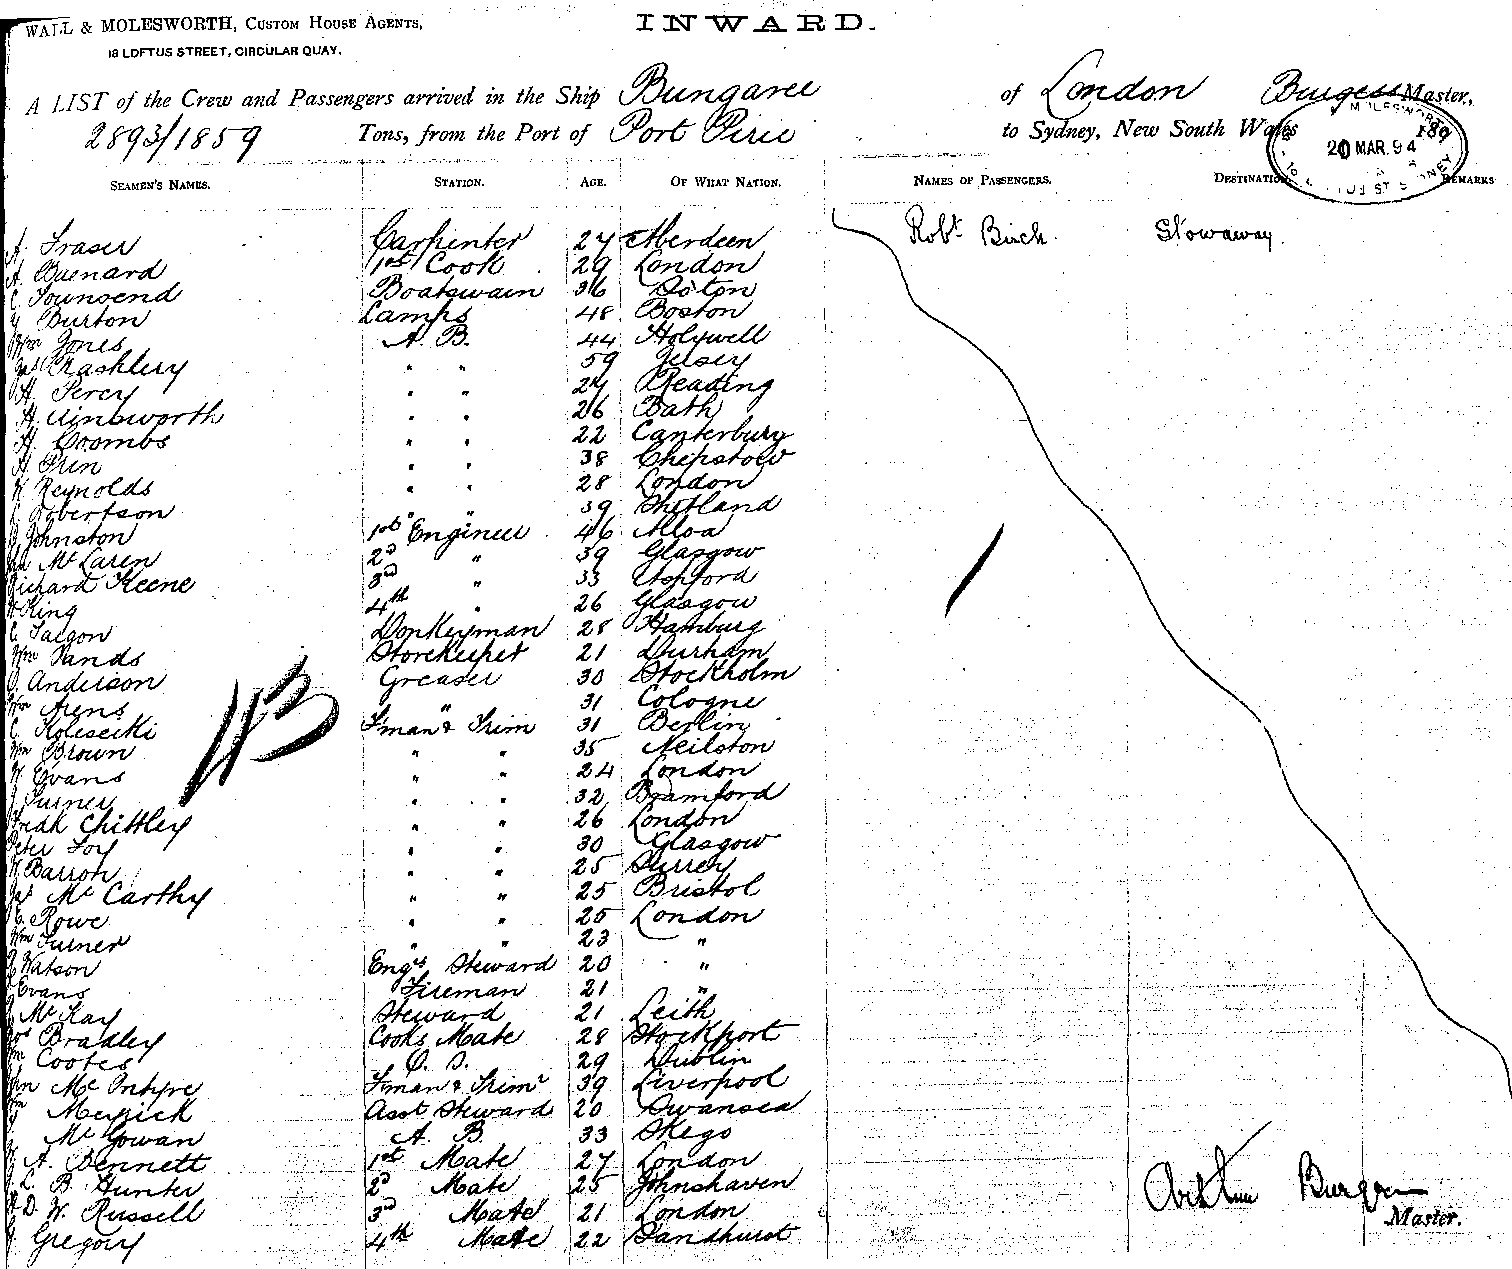 WALL & MOLESWORTH, CUSTOM HOUSE AGENTS,
18 LOFTUS STREET, CIRCULAR QUAY.
INWARD.
A LIST of the Crew and Passengers arrived in the Ship Bungaree of London Burgess Master,
2893/1859 Tons, from the Port of Port Pirie to Sydney, New South Wales 189
20 MAR. 94
SEAMEN'S NAMES. STATION. AGE. OF WHAT NATION. NAMES OF PASSENGERS. DESTINATION. REMARKS
A. Fraser Carpenter 27 Aberdeen Robt Birch Stowaway
A. Buenard 1st Cook 29 London
C Townsend Boatswain 36 So'ton
Burton Lamps 48 Boston
Wm Jones A. B. 44 Holywell
Jas Crashley " " 59 Jersey
H. Percy " " 27 Reading
H. Ainsworth " " 26 Bath
H. Coombs " " 22 Canterbury
H Prin " " 38 Chepstow
W Reynolds " " 28 London
Robertson " " 39 Shetland
Johnston 1st Engineer 46 Alloa
Mc Laren 2d " 39 Glasgow
Richard Keene 3rd " 33 Ashford
W King 4th " 26 Glasgow
C Salgon Donkeyman 28 Hamburg
Wm Sands Storekeeper 21 Durham
O. Anderson Greaser 30 Stockholm
Wm Arens " 31 Cologne
C Koliseiki F'man & Trim 31 Berlin
Wm Brown " " 35 Neilston
W Evans " " 24 London
J Turner " " 32 Bramford
Fredk Chittley " " 26 London
Peter Foy " " 30 Glasgow
W Barron " " 25 Surrey
Jas Mc Carthy " " 25 Bristol
C. Rowe " " 25 London
Wm Turner " " 23 "
Watson Engrs Steward 20 "
Evans Fireman 21 "
Mc Kay Steward 21 Leith
Bradley Cooks Mate 28 Stockport
Cootes O. S. 29 Dublin
Jn Mc Intyre F'man & Trimr 39 Liverpool
Meyrick Asst Steward 20 Swansea
Mc Gowan A. B. 33 Skego
A. Bennett 1st Mate 27 London
L. B. Hunter 2d Mate 25 Johnshaven
D. W. Russell 3rd Mate 21 London
J Gregory 4th Mate 22 Sandhurst
43
Arthur Burgess
Master.